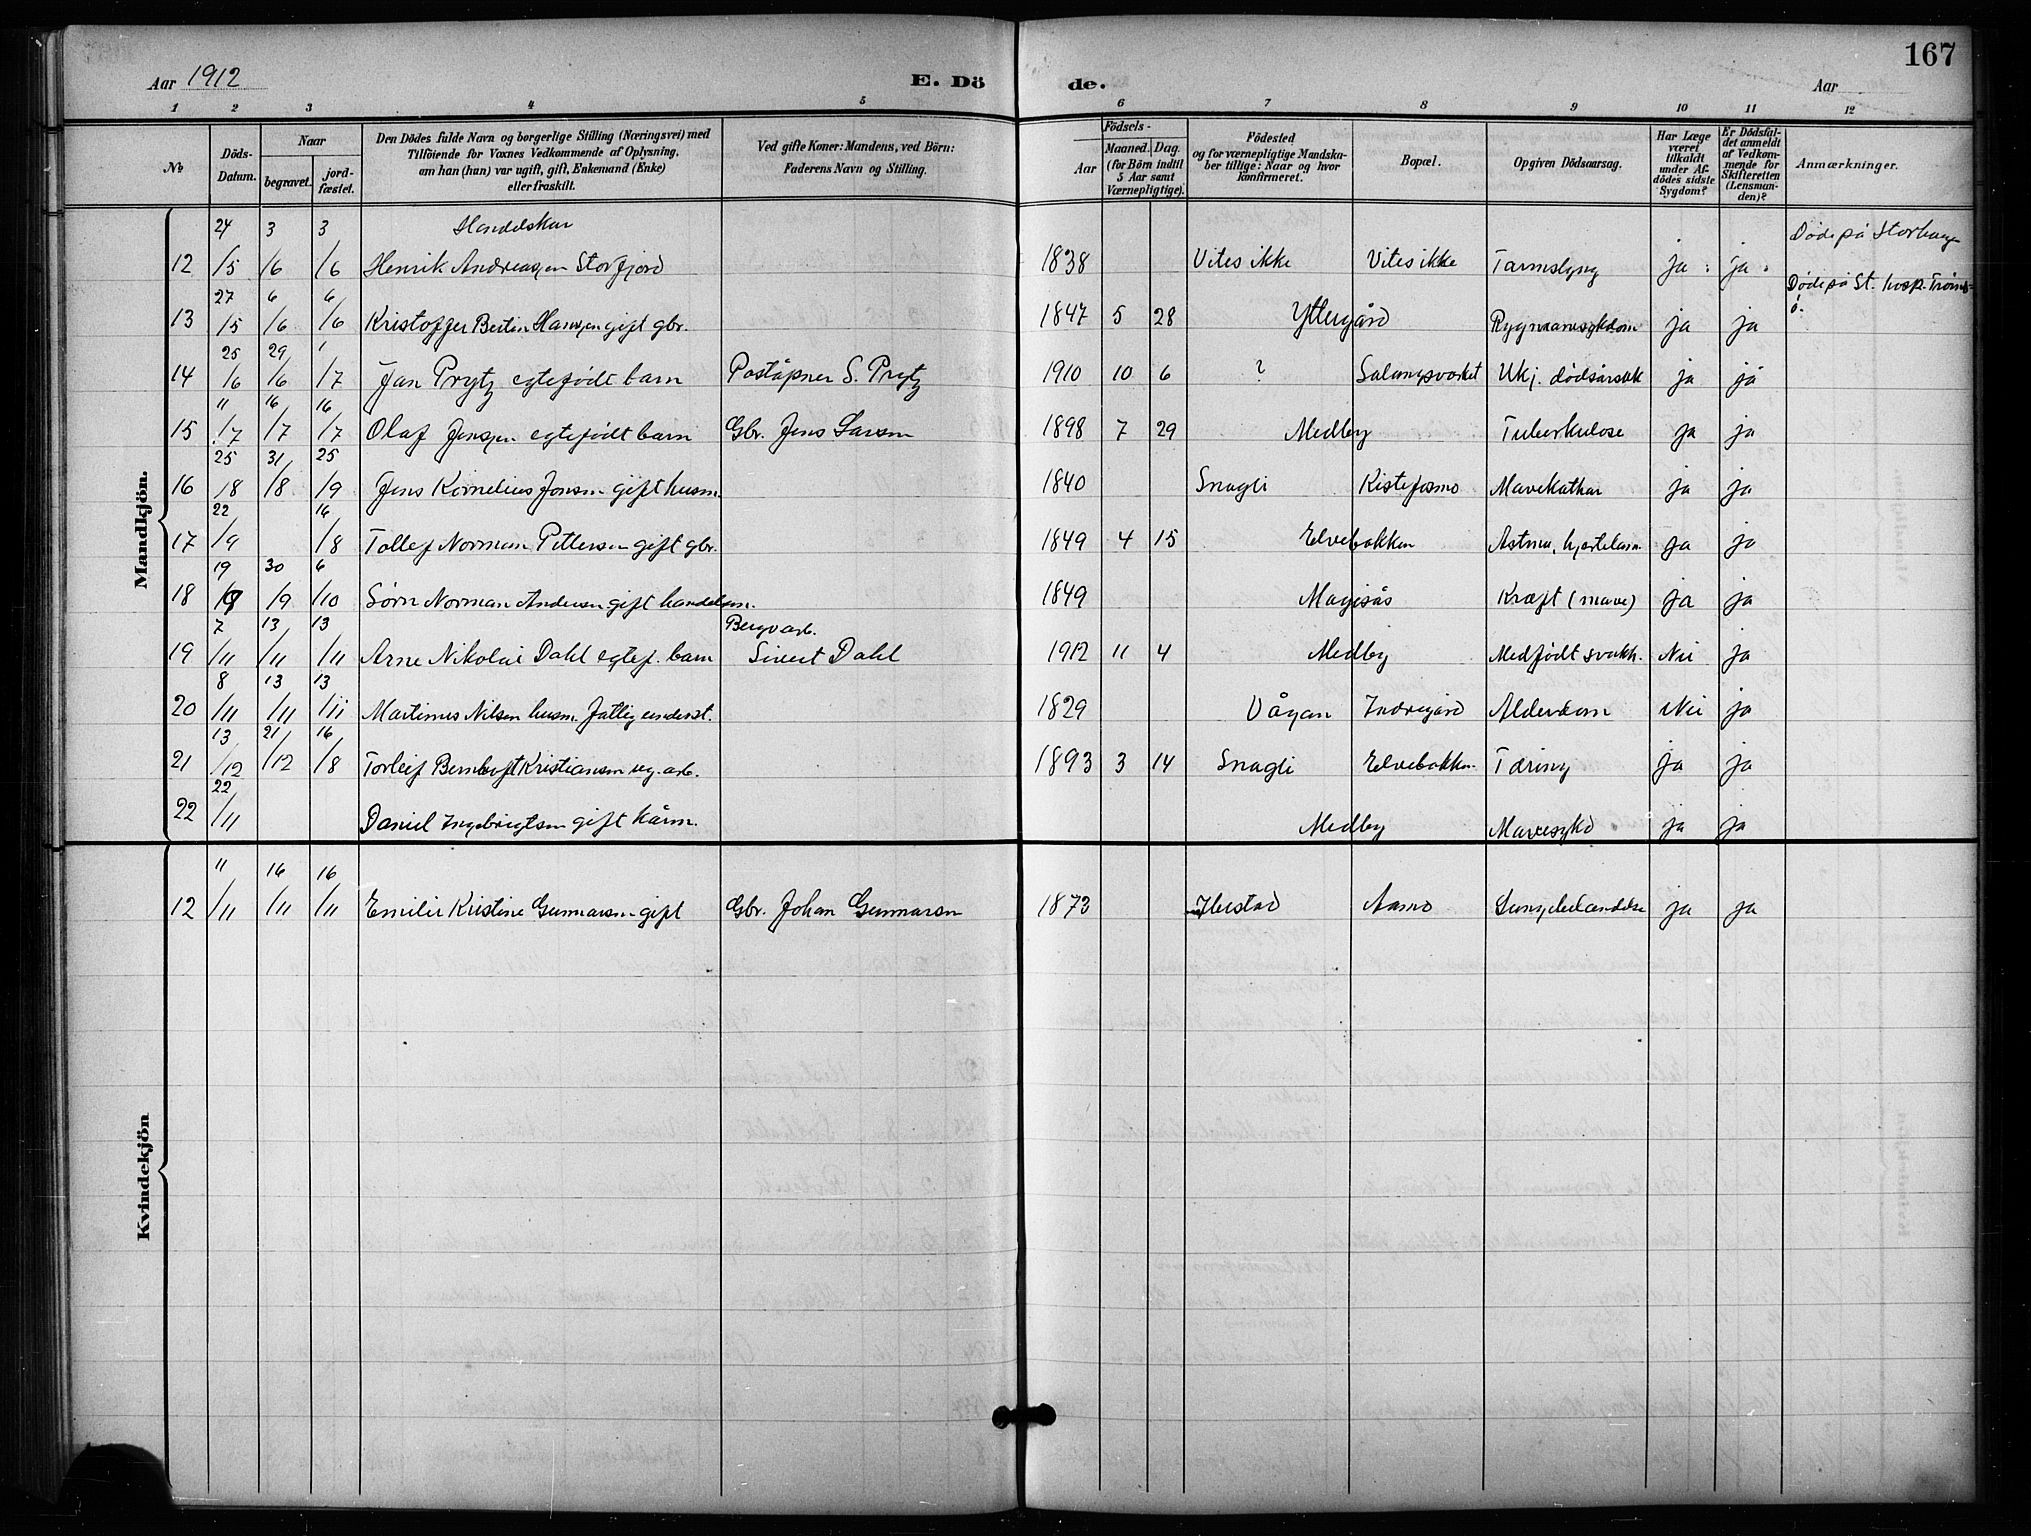 Aar 1912
E. Dö de.
Aar
167
1 2 3 4 5 6 7 8 9 10 11 12
№
Döds-Datum.
Naar
begravet.
jord-fæstet.
Den Dödes fulde Navn og borgerlige Stilling (Næringsvei) med
Tilföiende for Voxnes Vedkommende af Oplysning,
om han (hun) var ugift, gift, Enkemand (Enke)
eller fraskilt.
Ved gifte Koner: Mandens, ved Börn:
Faderens Navn og Stilling.
Födsels-
Aar
Maaned. Dag.
(for Börn indtil
5 Aar samt
Værnepligtige).
Födested
og for værnepligtige Mandska-
ber tillige: Naar og hvor
konfirmeret.
Bopæl.
Opgiven Dödsaarsag.
Har Læge
været
tilkaldt
under Af-
dödes sidste
Sygdom?
Er Dödsfal-
det anmeldt
af Vedkom-
mende for
Skifteretten
(Lensman-
den)?
Anmærkninger.
Mandkjön.
12 24/5 3/6 3/6 Handelskar Henrik Andreassen Storfjord 1838 Vites ikke Vites ikke Tarmslyng ja ja Døde på Storhaug
13 27/5 6/6 6/6 Kristoffer Bertin Hansen gift gbr. 1847 5 28 Yttergård Rygmarvsykdom ja ja Døde på St. hosp. Tromsø.
14 25/6 29/6 1/7 Jan Prytz egtefødt barn Poståpner S. Prytz 1910 10 6 ? Salangsverket Ukj. dødsårsak ja ja
15 11/7 16/7 16/7 Olaf Jensen egtefødt barn Gbr. Jens Larsen 1898 7 29 Medby Tuberkulose ja ja
16 25/8 31/8 25/9 Jens Kornelius Jensen gift husm. 1840 Snagli Kistefosmo Mavekathar ja ja
17 22/9 16/8 Tollef Norman Pettersen gift gbr. 1849 4 15 Elvebakken Astma, ja ja
18 19/9 30/9 6/10 Sørn Norman Andersen gift handelsm. 1849 Magesås Kræft (mave) ja ja
19 7/11 13/11 13/11 Arne Nikolai Dahl egtef. barn Bergvarb. Sivert Dahl 1912 11 4 Medby Medfødt svakh. Nei ja
20 8/11 13/11 13/11 Martinus Nilsen husm. fattigunderst. 1829 Vågan Indregård Alderdom Nei ja
21 13/12 21/12 16/8 Torleif Bernhoft Kristiansen ug. arb. 1893 3 14 Snagli Elvebakken Tæring ja ja
22 22/11 Daniel Ingebrigtsen gift kårm. Medby Mavesykd ja ja
Kvindekjön
12 11/11 16/11 16/11 Emilie Kristine Gunnarsen gift Gbr. Johan Gunnarsen 1873 Ibestad Aasmo Lungebetændelse ja ja